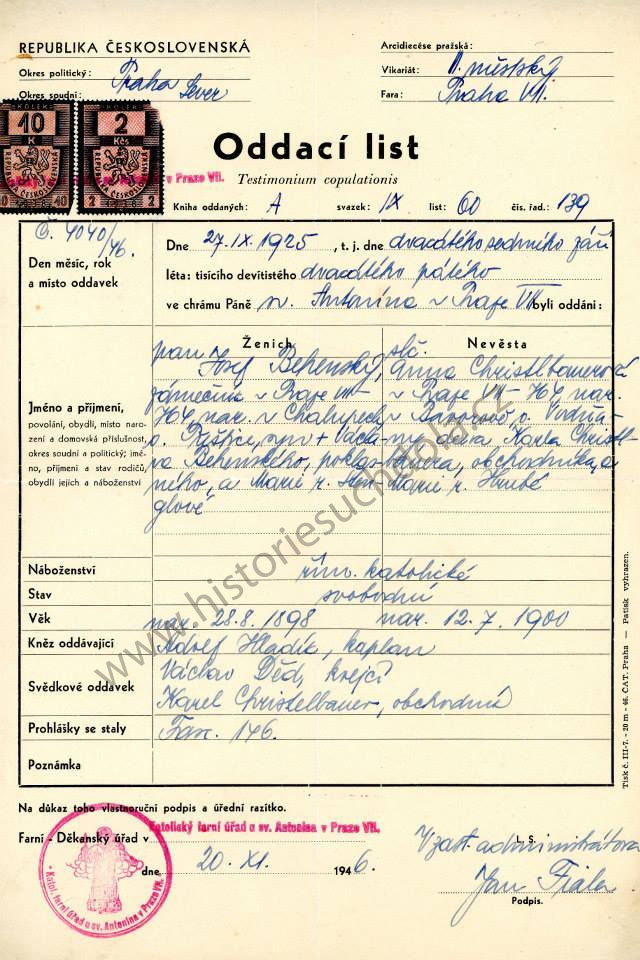 REPUBLIKA ČESKOSLOVENSKÁ
Okres politický: Praha
Okres soudní: Sever
Arcidiecése pražská:
Vikariát: II. městský
Fara: Praha VII.
KOLEK
10
K
REPUBLIKA ČESKOSLOVENSKÁ
KOLEK
2
Kčs
REPUBLIKA ČESKOSLOVENSKÁ
2 2
v Praze VII.
Oddací list
Testimonium copulationis
Kniha oddaných: A svazek: IX list: 60 čís. řad.: 139
Č. 4040/46.
Den měsíc, rok
a místo oddavek
Dne 27. IX. 1925, t. j. dne dvacátého sedmého září
léta: tisícího devítistého dvacátého pátého
ve chrámu Páně sv. Antonína v Praze VII byli oddáni:
Ženich
Nevěsta
Jméno a příjmení,
povolání, obydlí, místo naro-
zení a domovská příslušnost,
okres soudní a politický; jmé-
no, příjmení a stav rodičů,
obydlí jejich a náboženství
pan Josef Behenský,
zámečník v Praze VII-
764, nar. v Chalupech,
syn + Václa-
va Behenského, poklas-
ného, a Marie r.
slč.
Anna Christlbauerová
v Praze VII-764, nar.
v Bavorově, o. Vodňa-
ny, dcera Karla Christl-
bauera, obchodníka, a
Marie r. Hrubé
Náboženství řím. katolické
Stav svobodní
Věk nar. 28. 8. 1898 nar. 12. 7. 1900
Kněz oddávající Adolf Hladík, kaplan
Svědkové oddavek Václav Děd, krejčí
Karel Christelbauer, obchodník
Prohlášky se staly Fasc. 146.
Poznámka
www.historiesuchdola.cz
Tisk č. III-7. - 20 m - 46. ČAT. Praha — Patisk vyhrazen.
Na důkaz toho vlastnoruční podpis a úřední razítko.
Farní - Děkanský úřad v Katolický farní úřad u sv. Antonína v Praze VII.
dne 20. XI. 1946.
L. S.
Vzast. administrátora
Jan Fiala
Podpis.
Katol. farní úřad u sv. Antonína v Praze VII.